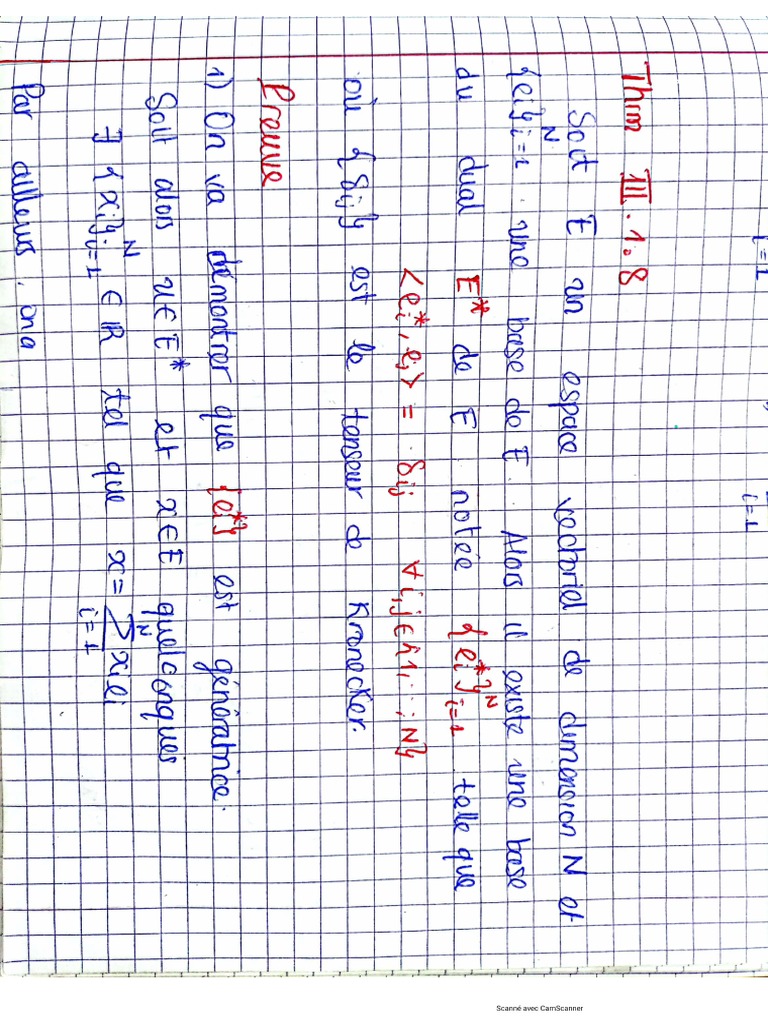 i=1 i=1
Thm III.1.8
Soit E un espace vectoriel de dimension N et
{ei}ᴺi=1 une base de E. Alors il existe une base
du dual E* de E notée {ei*}ᴺi=1 telle que
<ei*, ej> = δij ∀i,j∈{1,...,N}
où {δij} est le tenseur de Kronecker.
Preuve
1) On va démontrer que {ei*} est génératrice.
Soit alors u∈E* et x∈E quelconques
∃{xi}ᴺi=1 ∈ ℝ tel que x = ∑ᴺi=1 xiei
Par ailleurs, ona
Scanné avec CamScanner